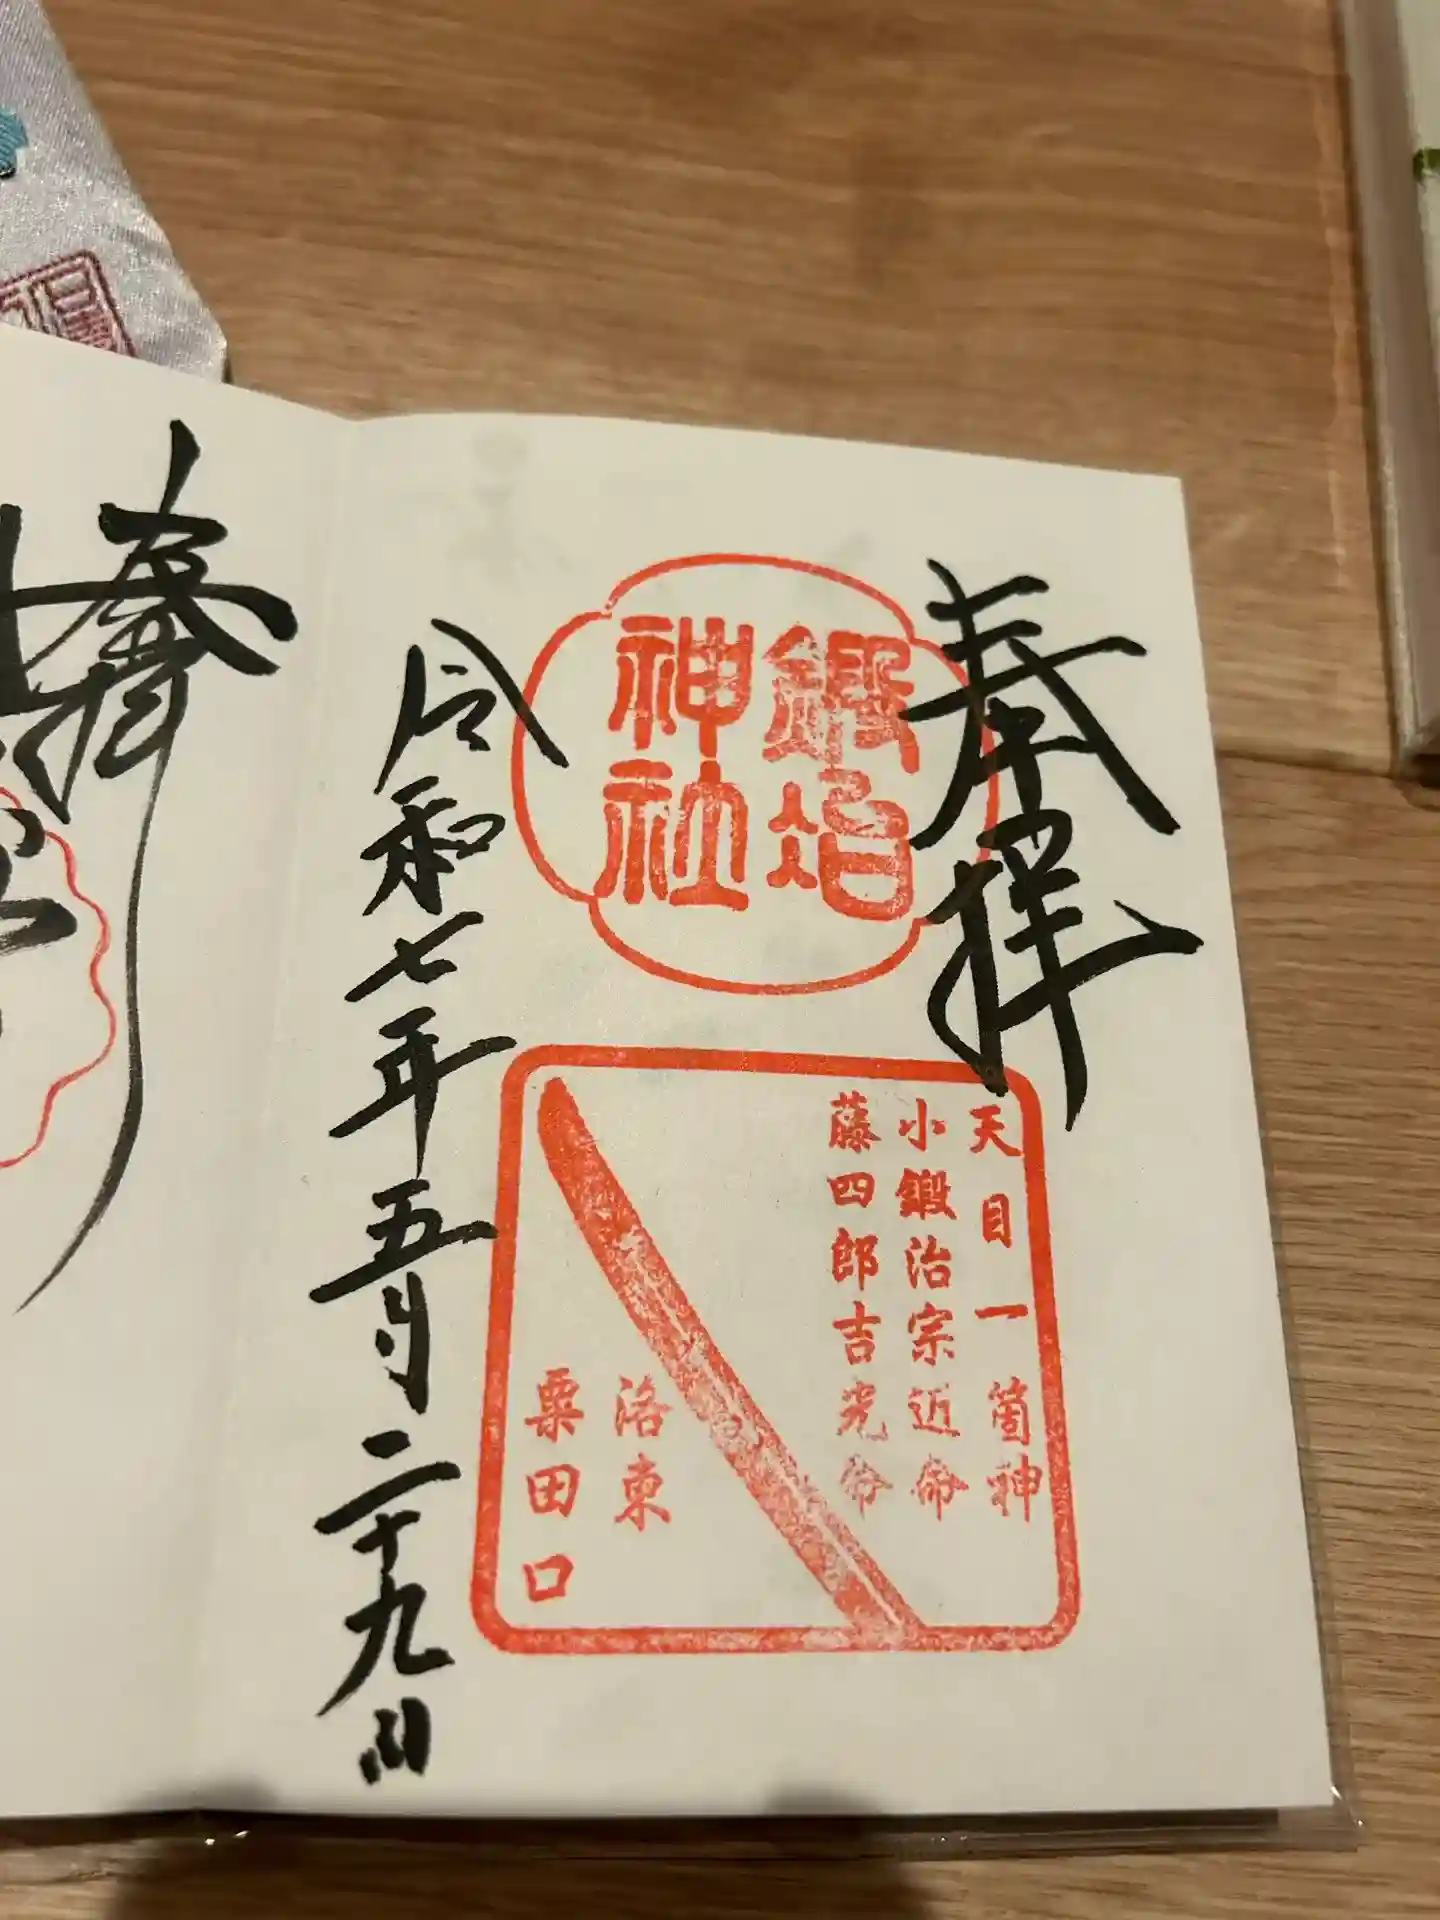 奉拝
鍛冶
神社
天目一箇神
小鍛治宗近命
藤四郎吉光命
洛東
粟田口
令和七年五月二十九日
奉拝